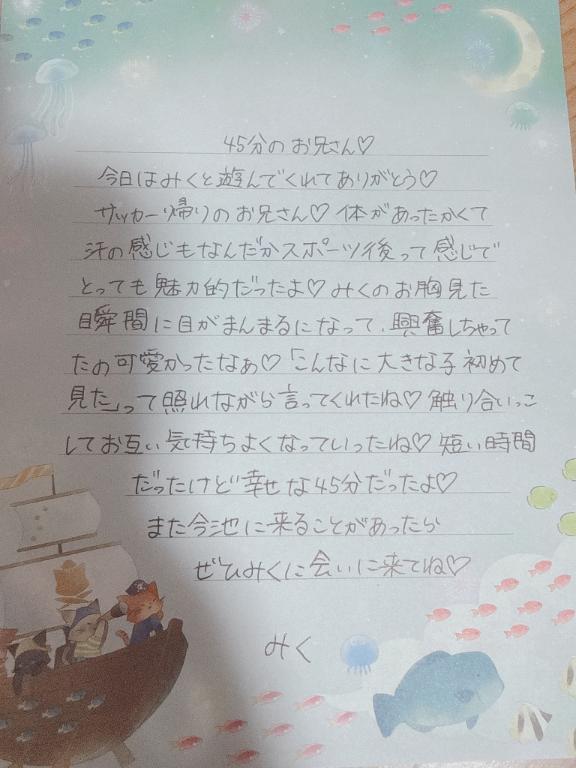 45分のお兄さん♡
今日はみくと遊んでくれてありがとう♡
サッカー帰りのお兄さん♡ 体があったかくて
汗の感じもなんだかスポーツ後って感じで
とっても魅力的だったよ♡ みくのお胸見た
瞬間に目がまんまるになって、興奮しちゃって
たの可愛かったなぁ♡「こんなに大きな子初めて
見た」って照れながら言ってくれたね♡ 触り合いっこ
してお互い気持ちよくなっていったね♡ 短い時間
だったけど幸せな45分だったよ♡
また今池に来ることがあったら
ぜひみくに会いに来てね♡
みく